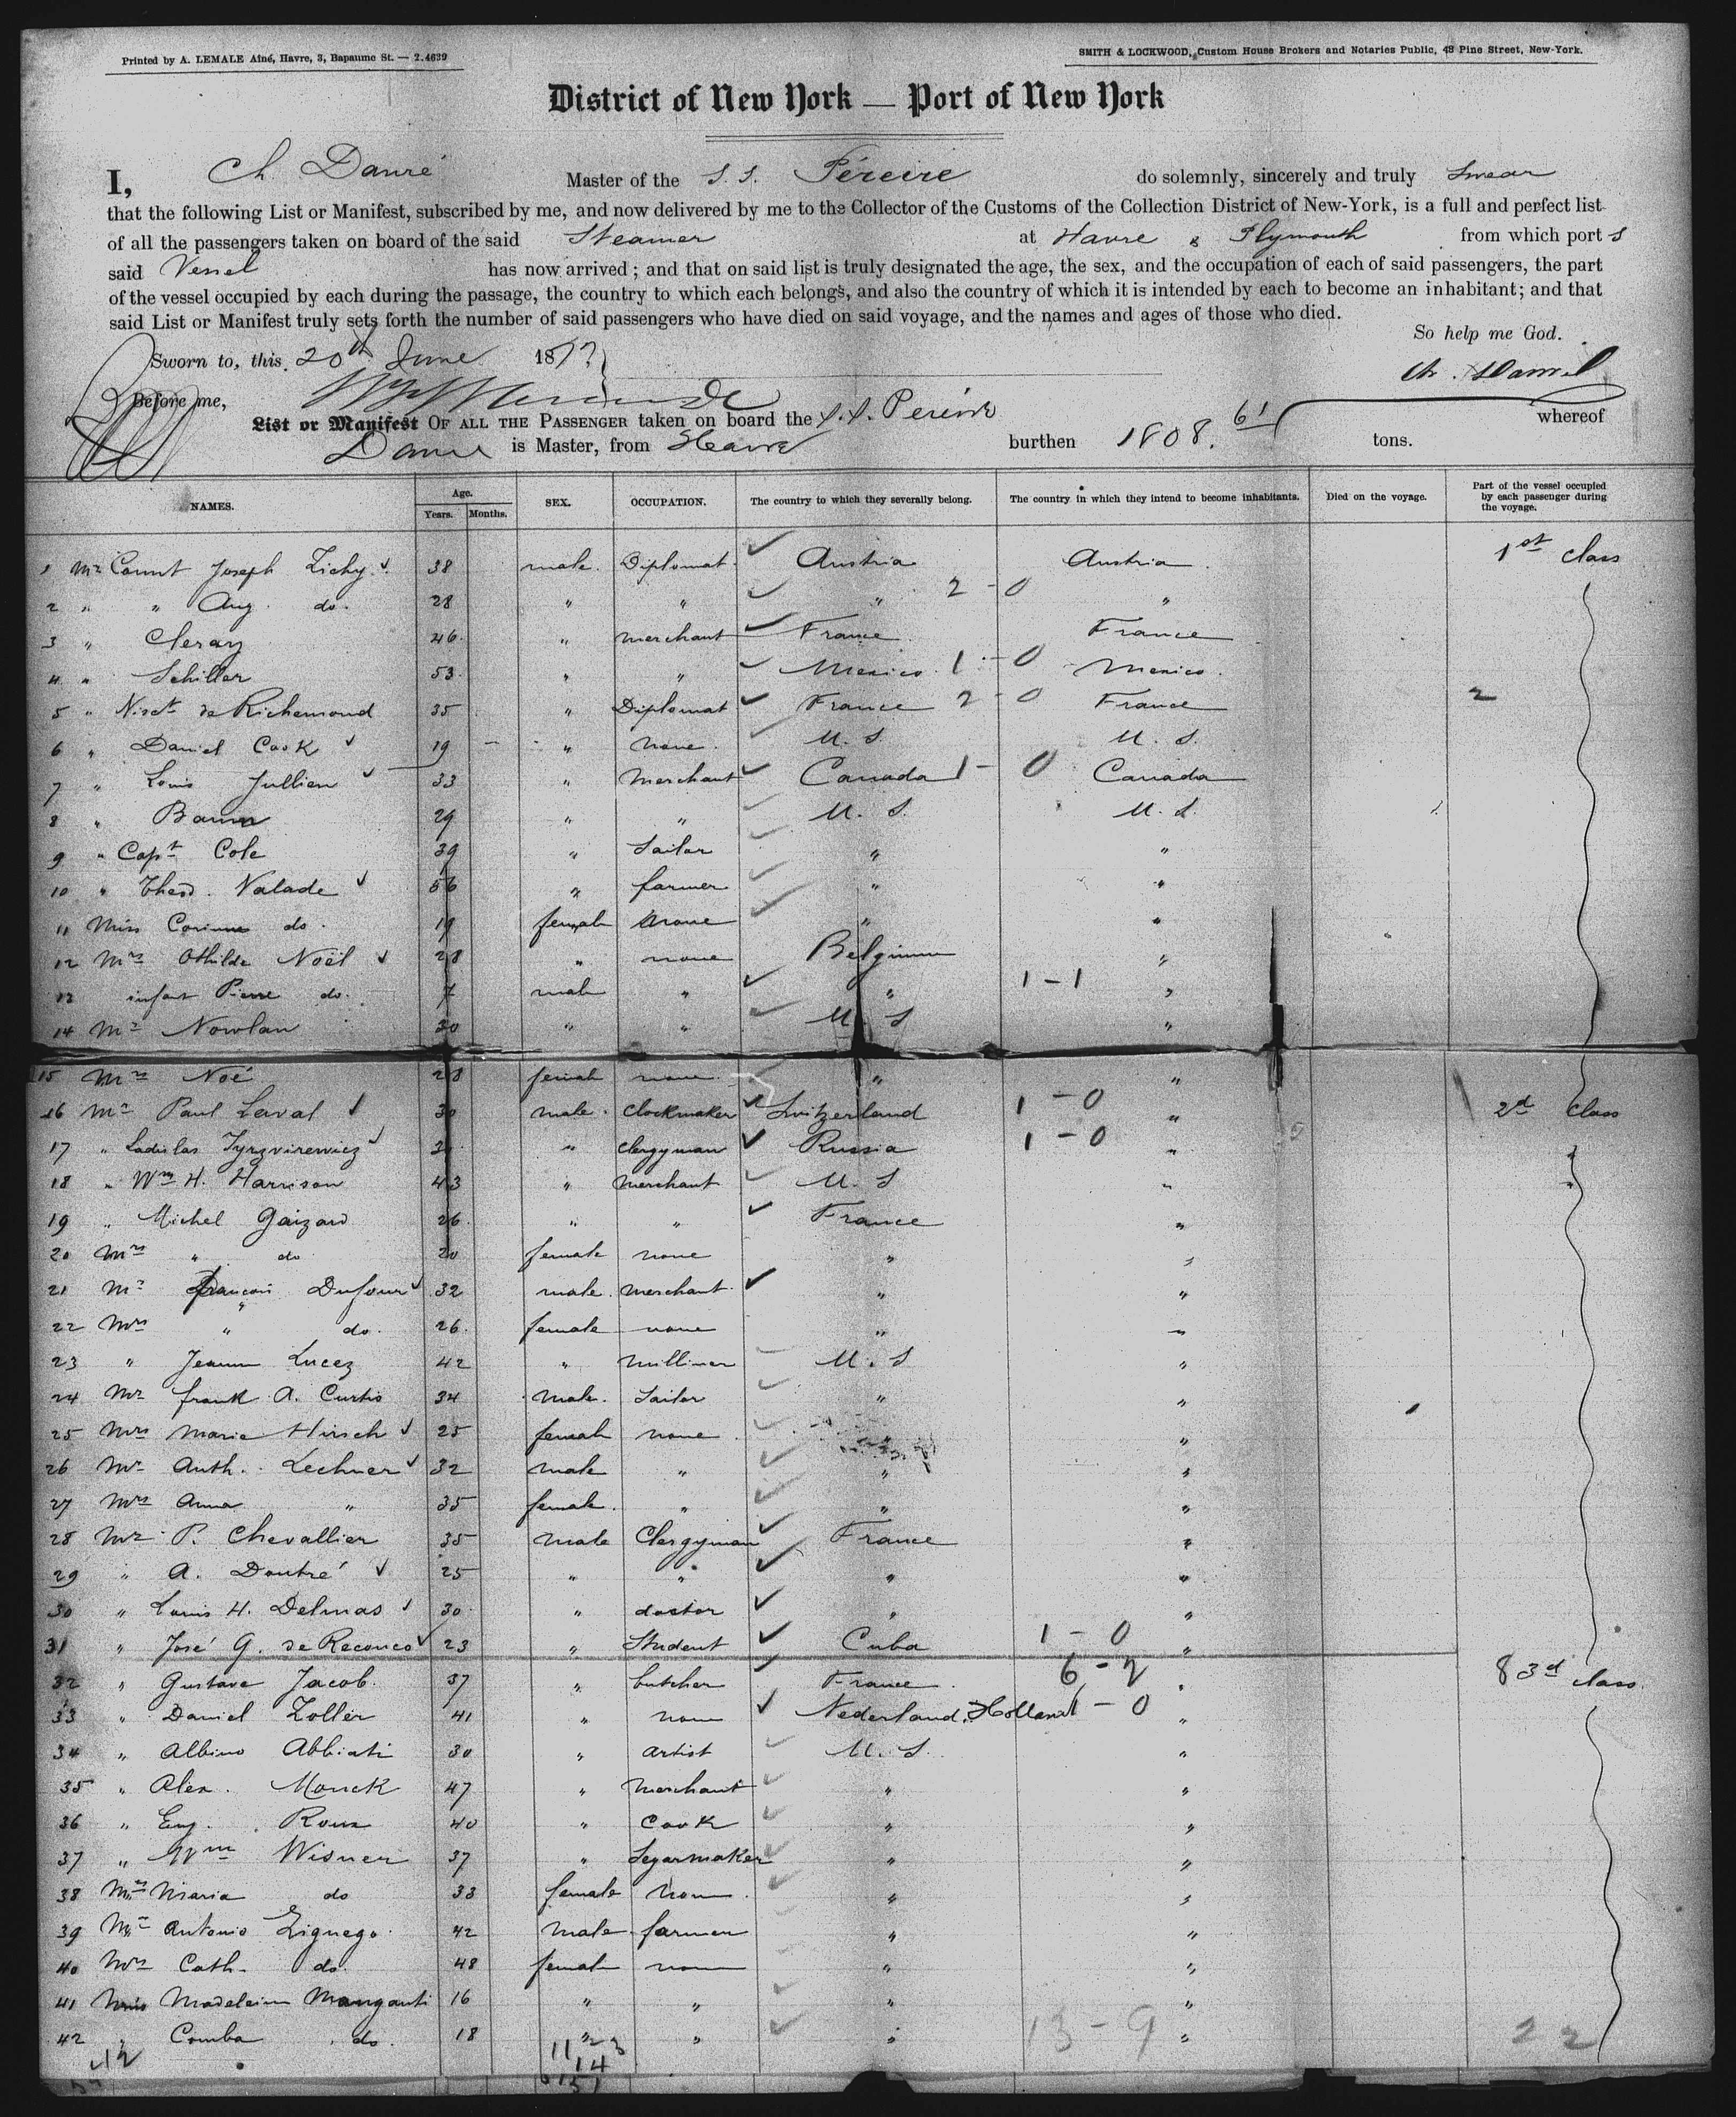 Printed by A. LEMALE Aîné, Havre, 3, Bapaume St. — 2.4639
SMITH & LOCKWOOD, Custom House Brokers and Notaries Public, 48 Pine Street, New-York.
District of New York — Port of New York
I, Ch Dauré Master of the S. S. Péreire do solemnly, sincerely and truly Swear
that the following List or Manifest, subscribed by me, and now delivered by me to the Collector of the Customs of the Collection District of New-York, is a full and perfect list
of all the passengers taken on board of the said Steamer at Havre & Plymouth from which port s
said Vessel has now arrived ; and that on said list is truly designated the age, the sex, and the occupation of each of said passengers, the part
of the vessel occupied by each during the passage, the country to which each belongs, and also the country of which it is intended by each to become an inhabitant; and that
said List or Manifest truly sets forth the number of said passengers who have died on said voyage, and the names and ages of those who died.
So help me God.
Sworn to, this 20th June 187
Before me,
List or Manifest OF ALL THE PASSENGER taken on board the S. S. Pereire whereof
is Master, from Havre burthen 1808. 61 tons.
NAMES. Age. Years. Months. SEX. OCCUPATION. The country to which they severally belong. The country in which they intend to become inhabitants. Died on the voyage. Part of the vessel occupied by each passenger during the voyage.
1 Mr Count Joseph Zichy 38 male Diplomat Austria Austria 1st Class
2 " " Aug. do. 28 " " " 2 - 0 "
3 " Cleray 46 " merchant France France
4 " Schiller 53 " " Mexico 1 - 0 Mexico
5 " de Richemond 35 " Diplomat France 2 - 0 France 2
6 " Daniel Cook 19 " none U. S. U. S.
7 " Louis Jullien 33 " Merchant Canada 1 - 0 Canada
8 " 29 " " U. S. U. S.
9 " Capt Cole 39 " Sailor " "
10 " Theod. Valade 56 " farmer " "
11 Miss Corinne do. 19 female none " "
12 Mrs Othilde Noël 28 " none Belgium "
13 infant Pierre do. 7 male " " 1 - 1 "
14 Mr Nowlan 30 " " U. S "
15 Mrs Noé 28 female none " "
16 Mr Paul Laval 30 male clockmaker Switzerland 1 - 0 " 2d Class
17 " Ladislas " clergyman Russia 1 - 0 "
18 " Wm H. Harrison 43 " Merchant U. S "
19 " Michel Gaizard 26 " " France "
20 Mrs " do 20 female none " "
21 Mr Francois Dufour 32 male merchant " "
22 Mrs " do. 26 female none " "
23 " Jeanne Lucez 42 " milliner U. S "
24 Mr Frank A. Curtis 34 male Sailor " "
25 Mrs Marie Hirsch 25 female none " "
26 Mr Anth. Lechner 32 male " " "
27 Mrs Anna " 35 female " " "
28 Mr P. Chevallier 35 male Clergyman France "
29 " A. Doutré 25 " " " "
30 " Louis H. Delmas 30 " doctor " "
31 " José G. de Reconco 23 " Student Cuba 1 - 0 "
32 " Gustave Jacob 37 " butcher France 6 - 2 " 8 3d class
33 " Daniel Zoller 41 " none Nederland. Holland 1 - 0 "
34 " Albino Abbiati 30 " artist U. S. "
35 " Alex. Monck 47 " Merchant " "
36 " Eug. Roux 40 " Cook " "
37 " Wm Wisner 37 " Segarmaker " "
38 Mrs Maria do 33 female none " "
39 Mr Antonio Lignego 42 male farmer " "
40 Mrs Cath. do. 48 female none " "
41 Miss Madeleine Manganti 16 " " " "
42 " Comba do. 18 " " " 13 - 9 " 22
42